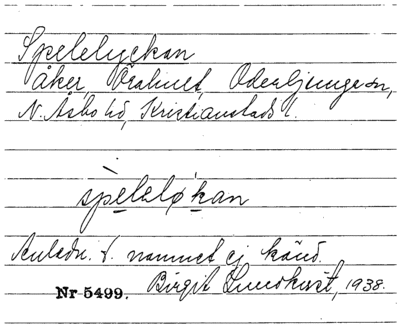 Spelelyckan
åker, Örahult, Oderljunga sn,
N. Åsbo hd, Kristianstads l.
speleløkan
Anledn. t. namnet ej känd.
Birgit Lundkvist, 1938.
Nr 5499.